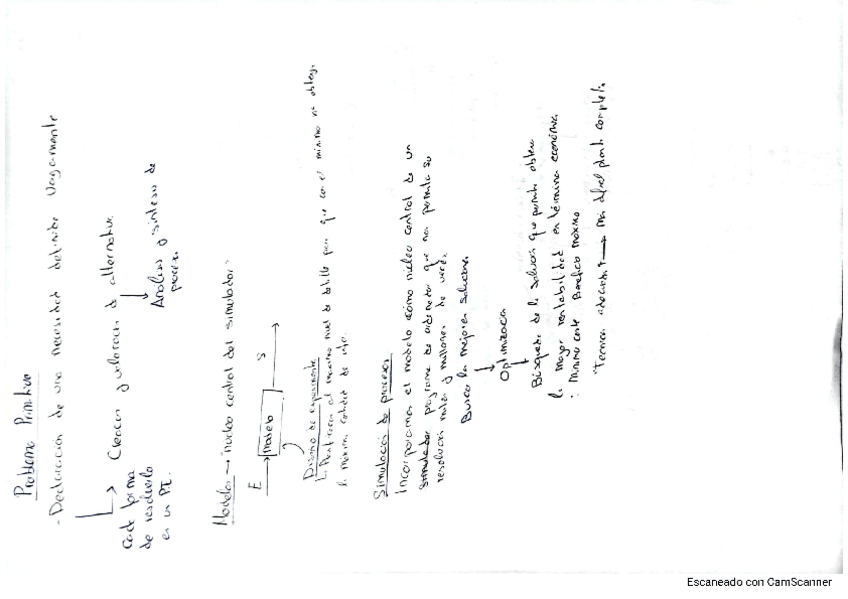 Problema Primitivo
- Declaración de una necesidad definida vagamente
Creación y valoración de alternativas
Cada forma
de resolverlo
es un P.I.
Análisis y síntesis de
procesos
Modelos → núcleo central del simulador
E modelo S
Diseño de experimento
Planificar al máximo nivel de detalle para que con el mínimo nº obteng.
la máxima cantidad de info.
Simulación de procesos
Incorporamos el modelo como núcleo central de un
simulador programa de ordenador que nos permita su
resolución miles y millones de veces.
Busca la mejores soluciones
Optimización
Búsqueda de la solución que permita obtener
la mayor rentabilidad en términos económicos
: mínimo coste Beneficio máximo
Escaneado con CamScanner